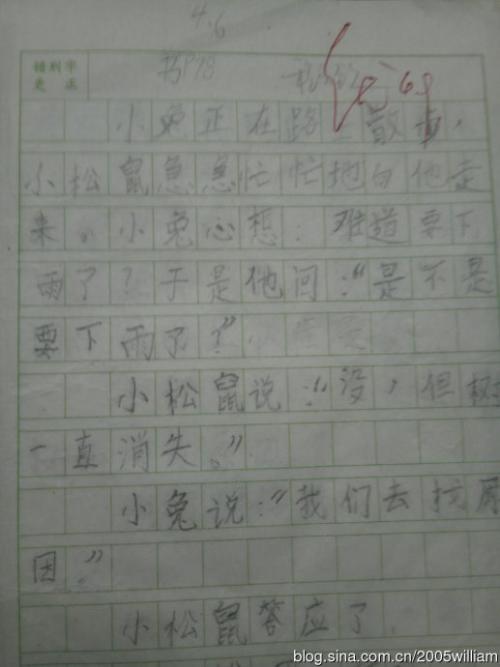 4.6
错别字
更正
书P78
小兔正在路上散步,
小松鼠急急忙忙地向他走
来。小兔心想:难道要下
雨了?于是他问:“是不是
要下雨了?”
小松鼠说:“没,但
一直消失。”
小兔说:“我们去找原
因。”
小松鼠答应了
blog.sina.com.cn/2005william